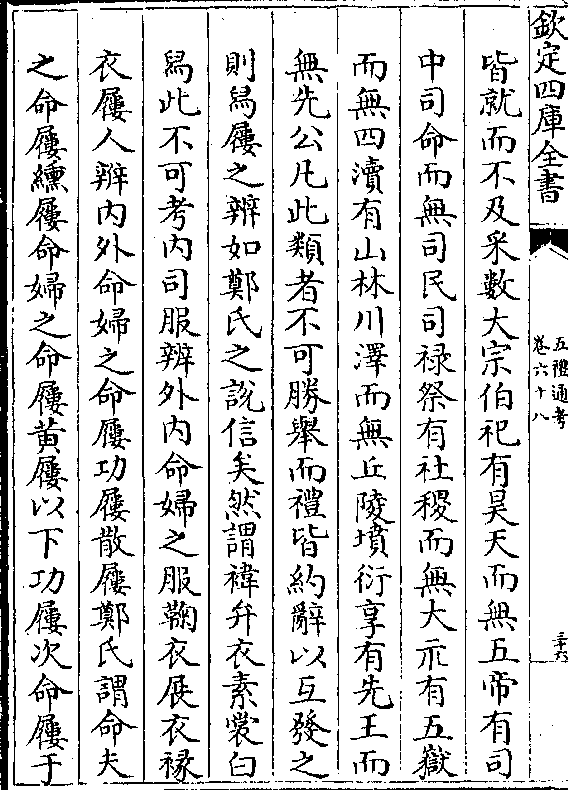 欽定四庫全書
五禮通考
卷六十八
三六
皆就而不及采數大宗伯祀有昊天而無五帝有司
中司命而無司民司禄祭有社稷而無大示有五嶽
而無四瀆有山林川澤而無丘陵墳衍享有先王而
無先公凡此類者不可勝舉而禮皆約辭以互發之
則舄屨之辨如鄭氏之說信矣然謂褘弁衣素裳白
舄此不可考内司服辨外内命婦之服鞠衣展衣褖
衣屨人辨内外命婦之命屨功屨散屨鄭氏謂命夫
之命屨纁屨命婦之命屨黄屨以下功屨次命屨于